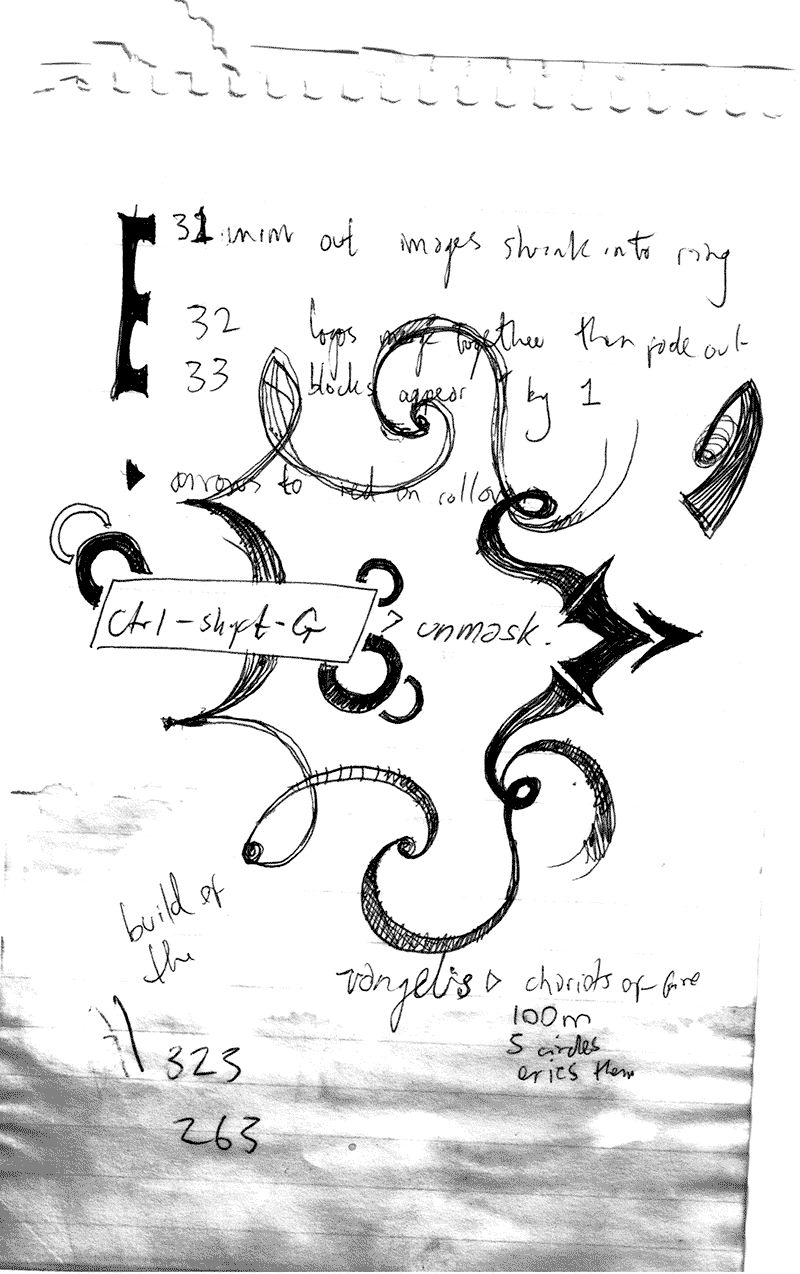 31 anim out images shrink into ring
32 logos merge together then fade out
33 blocks appear by 1
arrows to red on rollover
Ctrl-shift-G > unmask.
build of
the
vangelis ▷ chariots of fire
100m
5 circles
erics them
323
263